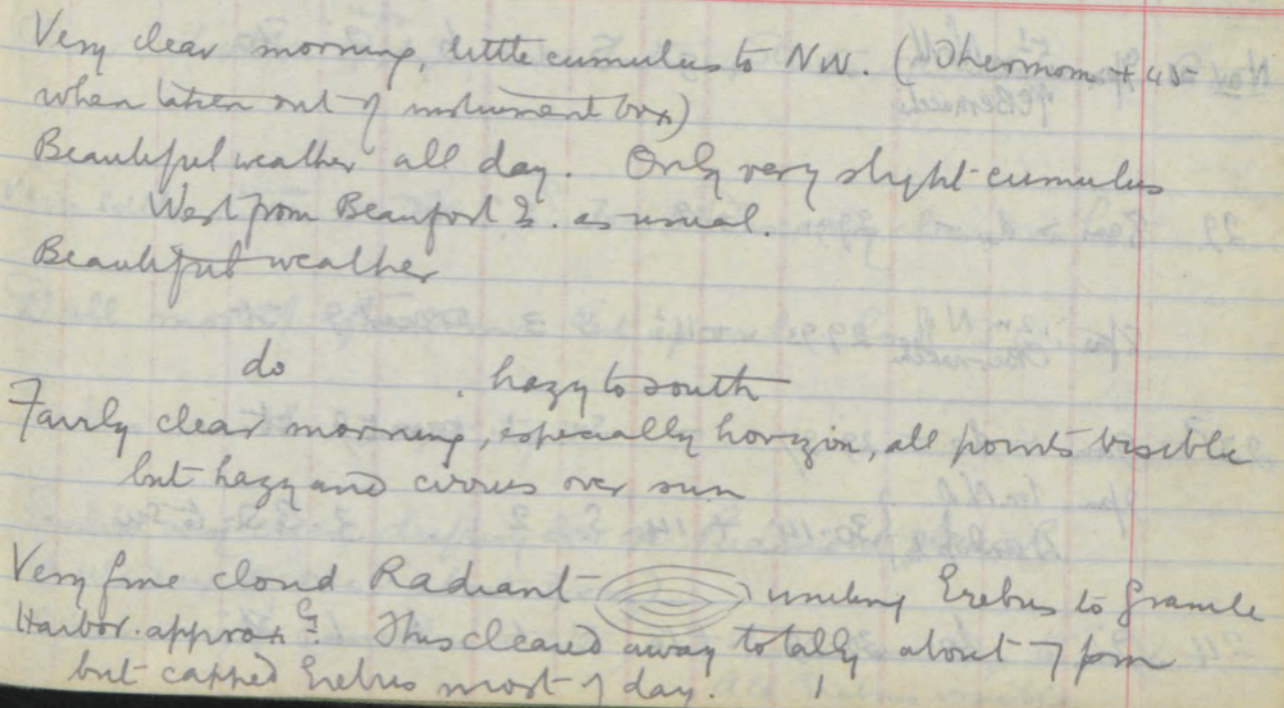 Very clear morning, little cumulus to NW. (Thermom + 45
when taken out of instrument box)
Beautiful weather all day. Only very slight cumulus
West from Beaufort Is. as usual.
Beautiful weather
do . hazy to south
Fairly clear morning, especially horizon, all points visible
but hazy and cirrus over sun
Very fine cloud Radiant uniting Erebus to Granite
Harbor. approx. This cleared away totally about 7 pm
but capped Erebus most of day.